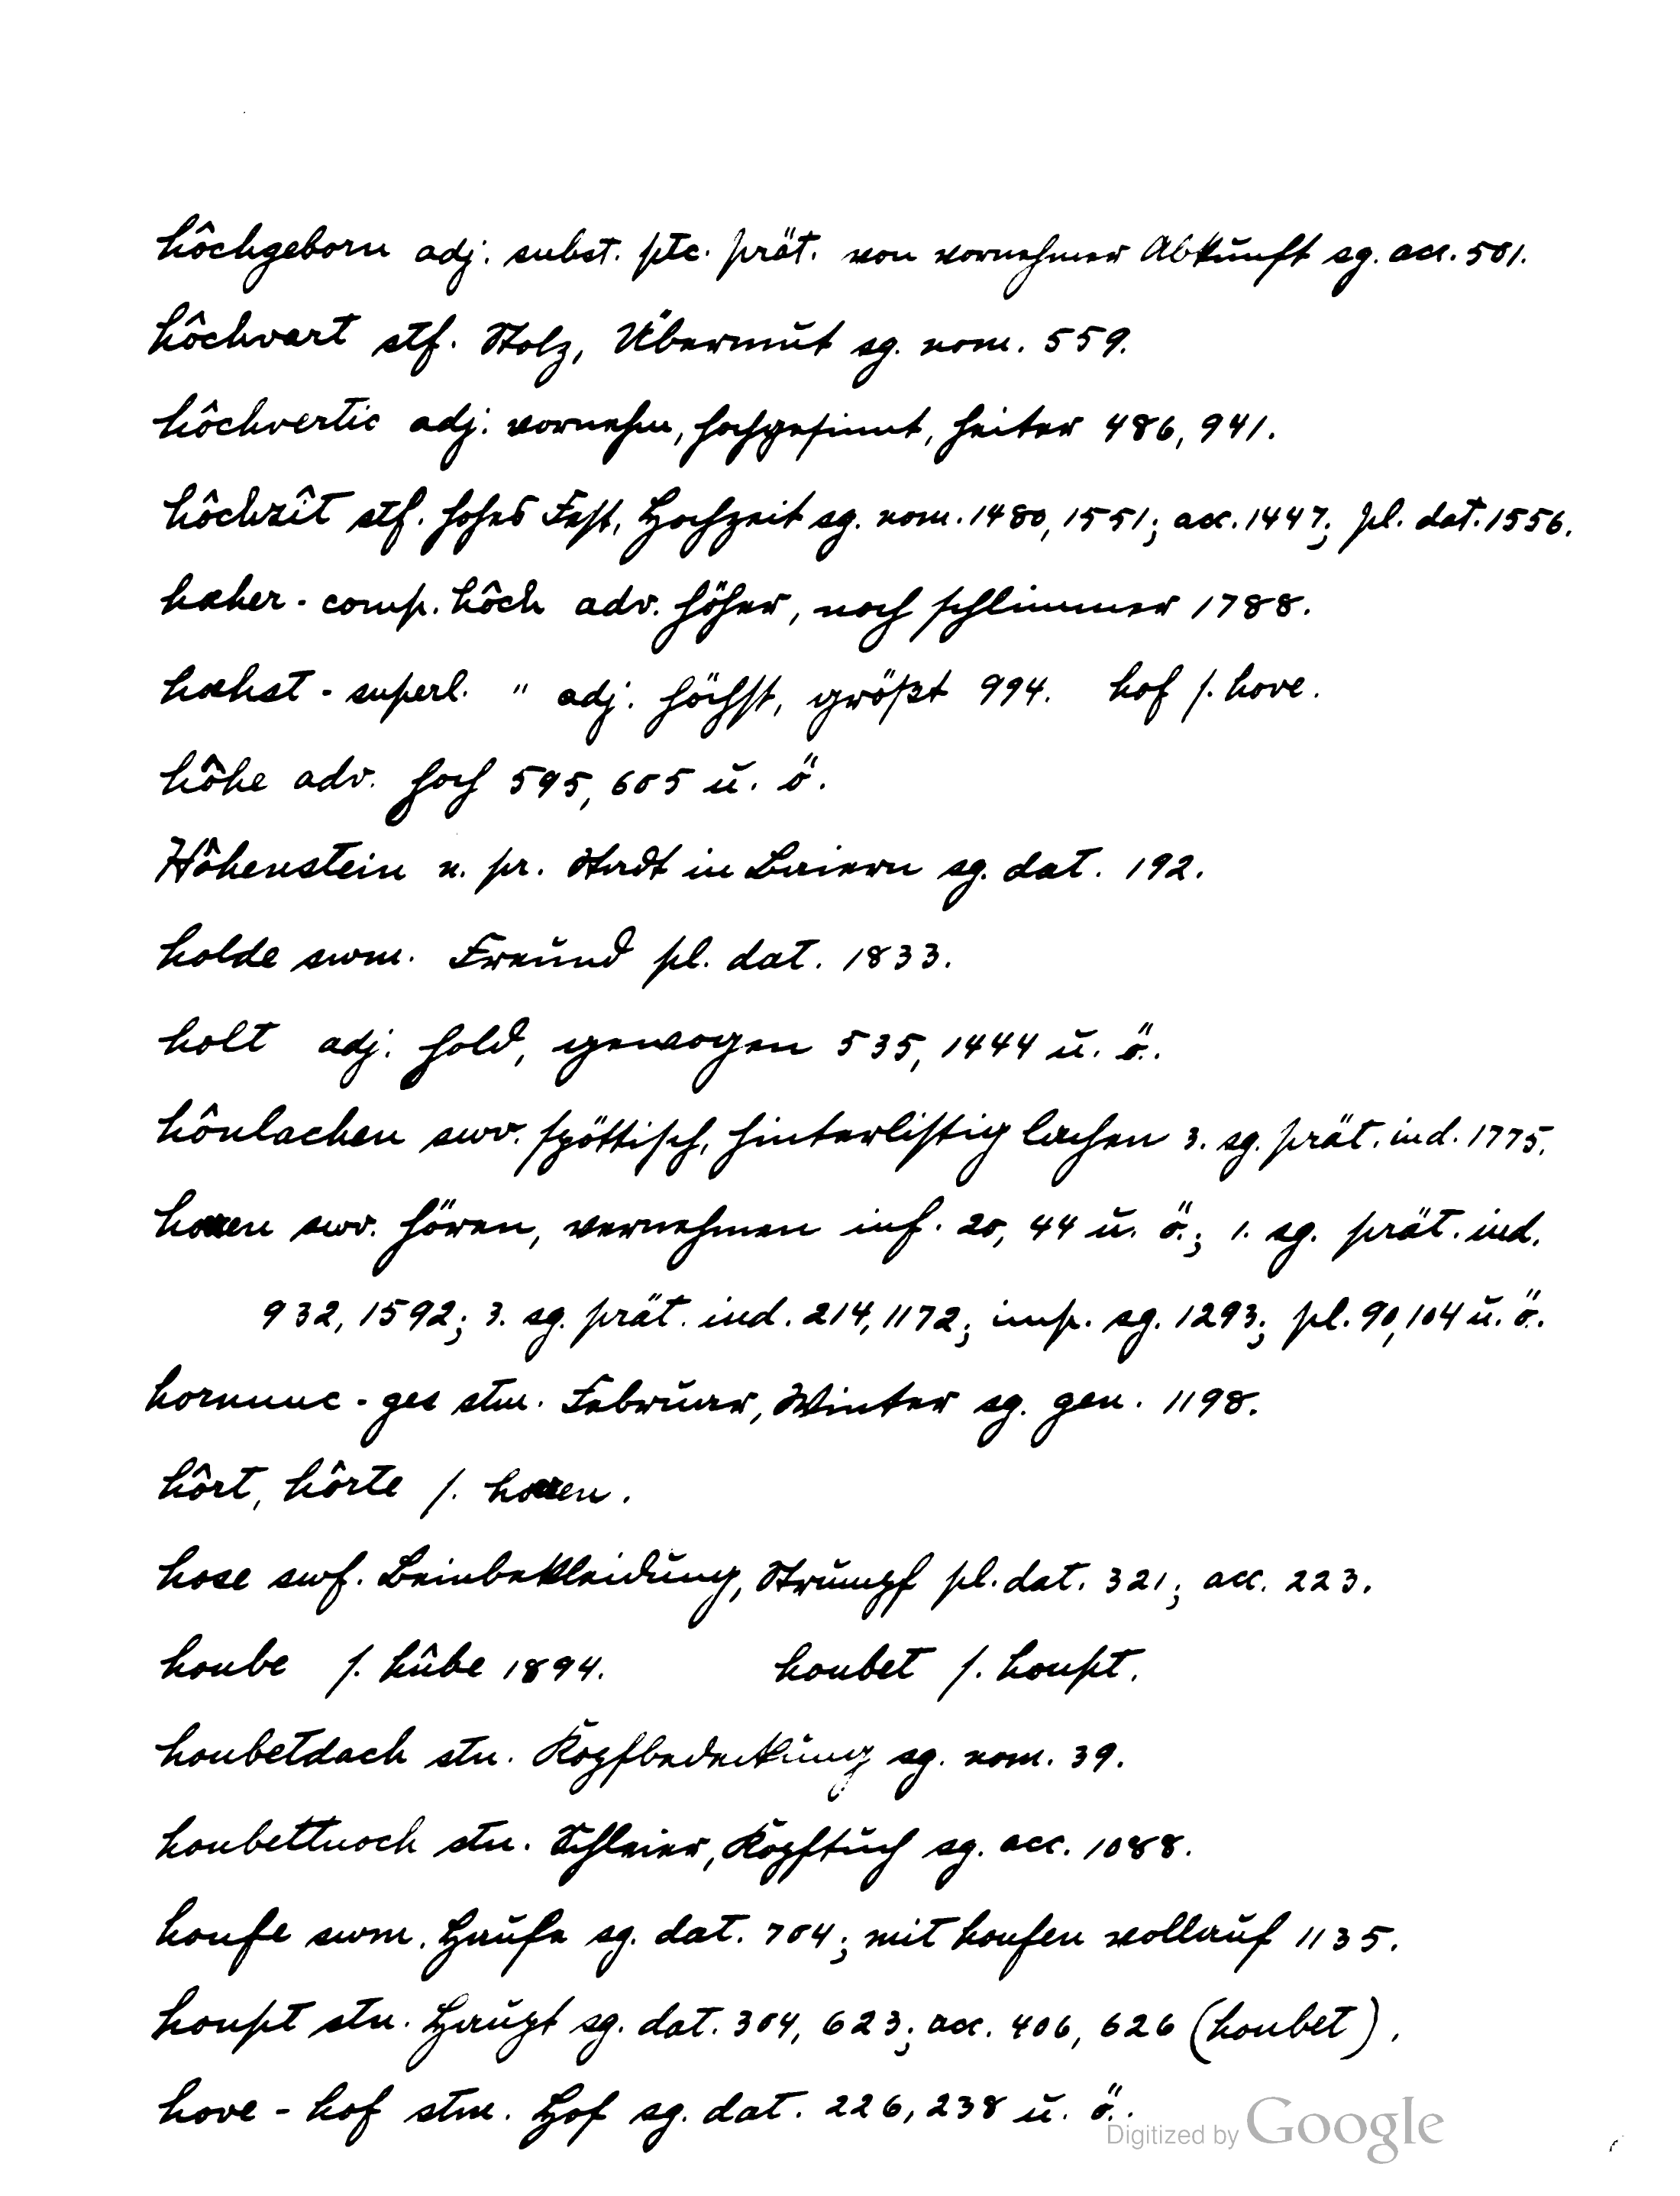 hôchgeborn adj. subst. ptc. prät. von vornehmer Abkunft sg. acc. 501.
hôchvart stf. Stolz, Übermut sg. nom. 559.
hôchvertic adj. vornehm, hochgesinnt, heiter 486, 941.
hôchzît stf. hohes Fest, Hochzeit sg. nom. 1480, 1551; acc. 1447; pl. dat. 1556.
hœher - comp. hôch adv. höher, noch schlimmer 1788.
hœhst - superl. " adj. höchst, größt 994. hof s. hove.
hôhe adv. hoch 595, 605 u. ö.
Hôhenstein n. pr. Stadt in Baiern sg. dat. 192.
holde swm. Freund pl. dat. 1833.
holt adj. hold, gewogen 535, 1444 u. ö.
hônlachen swv. spöttisch, hinterlistig lachen 3. sg. prät. ind. 1775.
hœren swv. hören, vernehmen inf. 20, 44 u. ö.; 1. sg. prät. ind.
932, 1592; 3. sg. prät. ind. 214, 1172; imp. sg. 1293; pl. 90, 104 u. ö.
hornunc - ges stm. Februar, Winter sg. gen. 1198.
hôrt, hôrte s. hœren.
hose swf. Beinbekleidung, Strumpf pl. dat. 321; acc. 223.
hoube s. hûbe 1894. houbet s. houpt.
houbetdach stn. Kopfbedeckung sg. nom. 39.
houbettuoch stn. Schleier, Kopftuch sg. acc. 1088.
houfe swm. Haufe sg. dat. 704; mit houfen vollauf 1135.
houpt stn. Haupt sg. dat. 304, 623; acc. 406, 626 (houbet).
hove - hof stm. Hof sg. dat. 226, 238 u. ö.
Digitized by Google